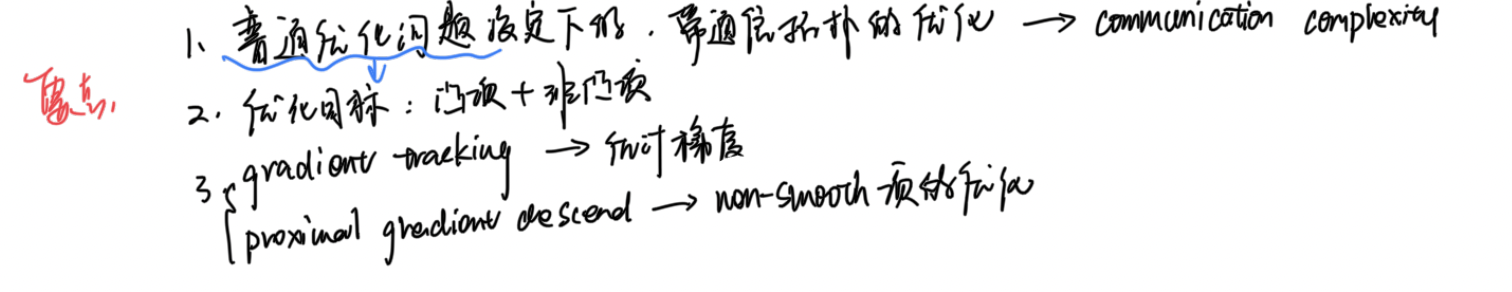 1、普通优化问题设定下的、带通信拓扑的优化 → communication complexity
要点,
2. 优化目标：凸项+非凸项
3 { gradient tracking → 估计梯度
proximal gradient descend → non-smooth 项的优化